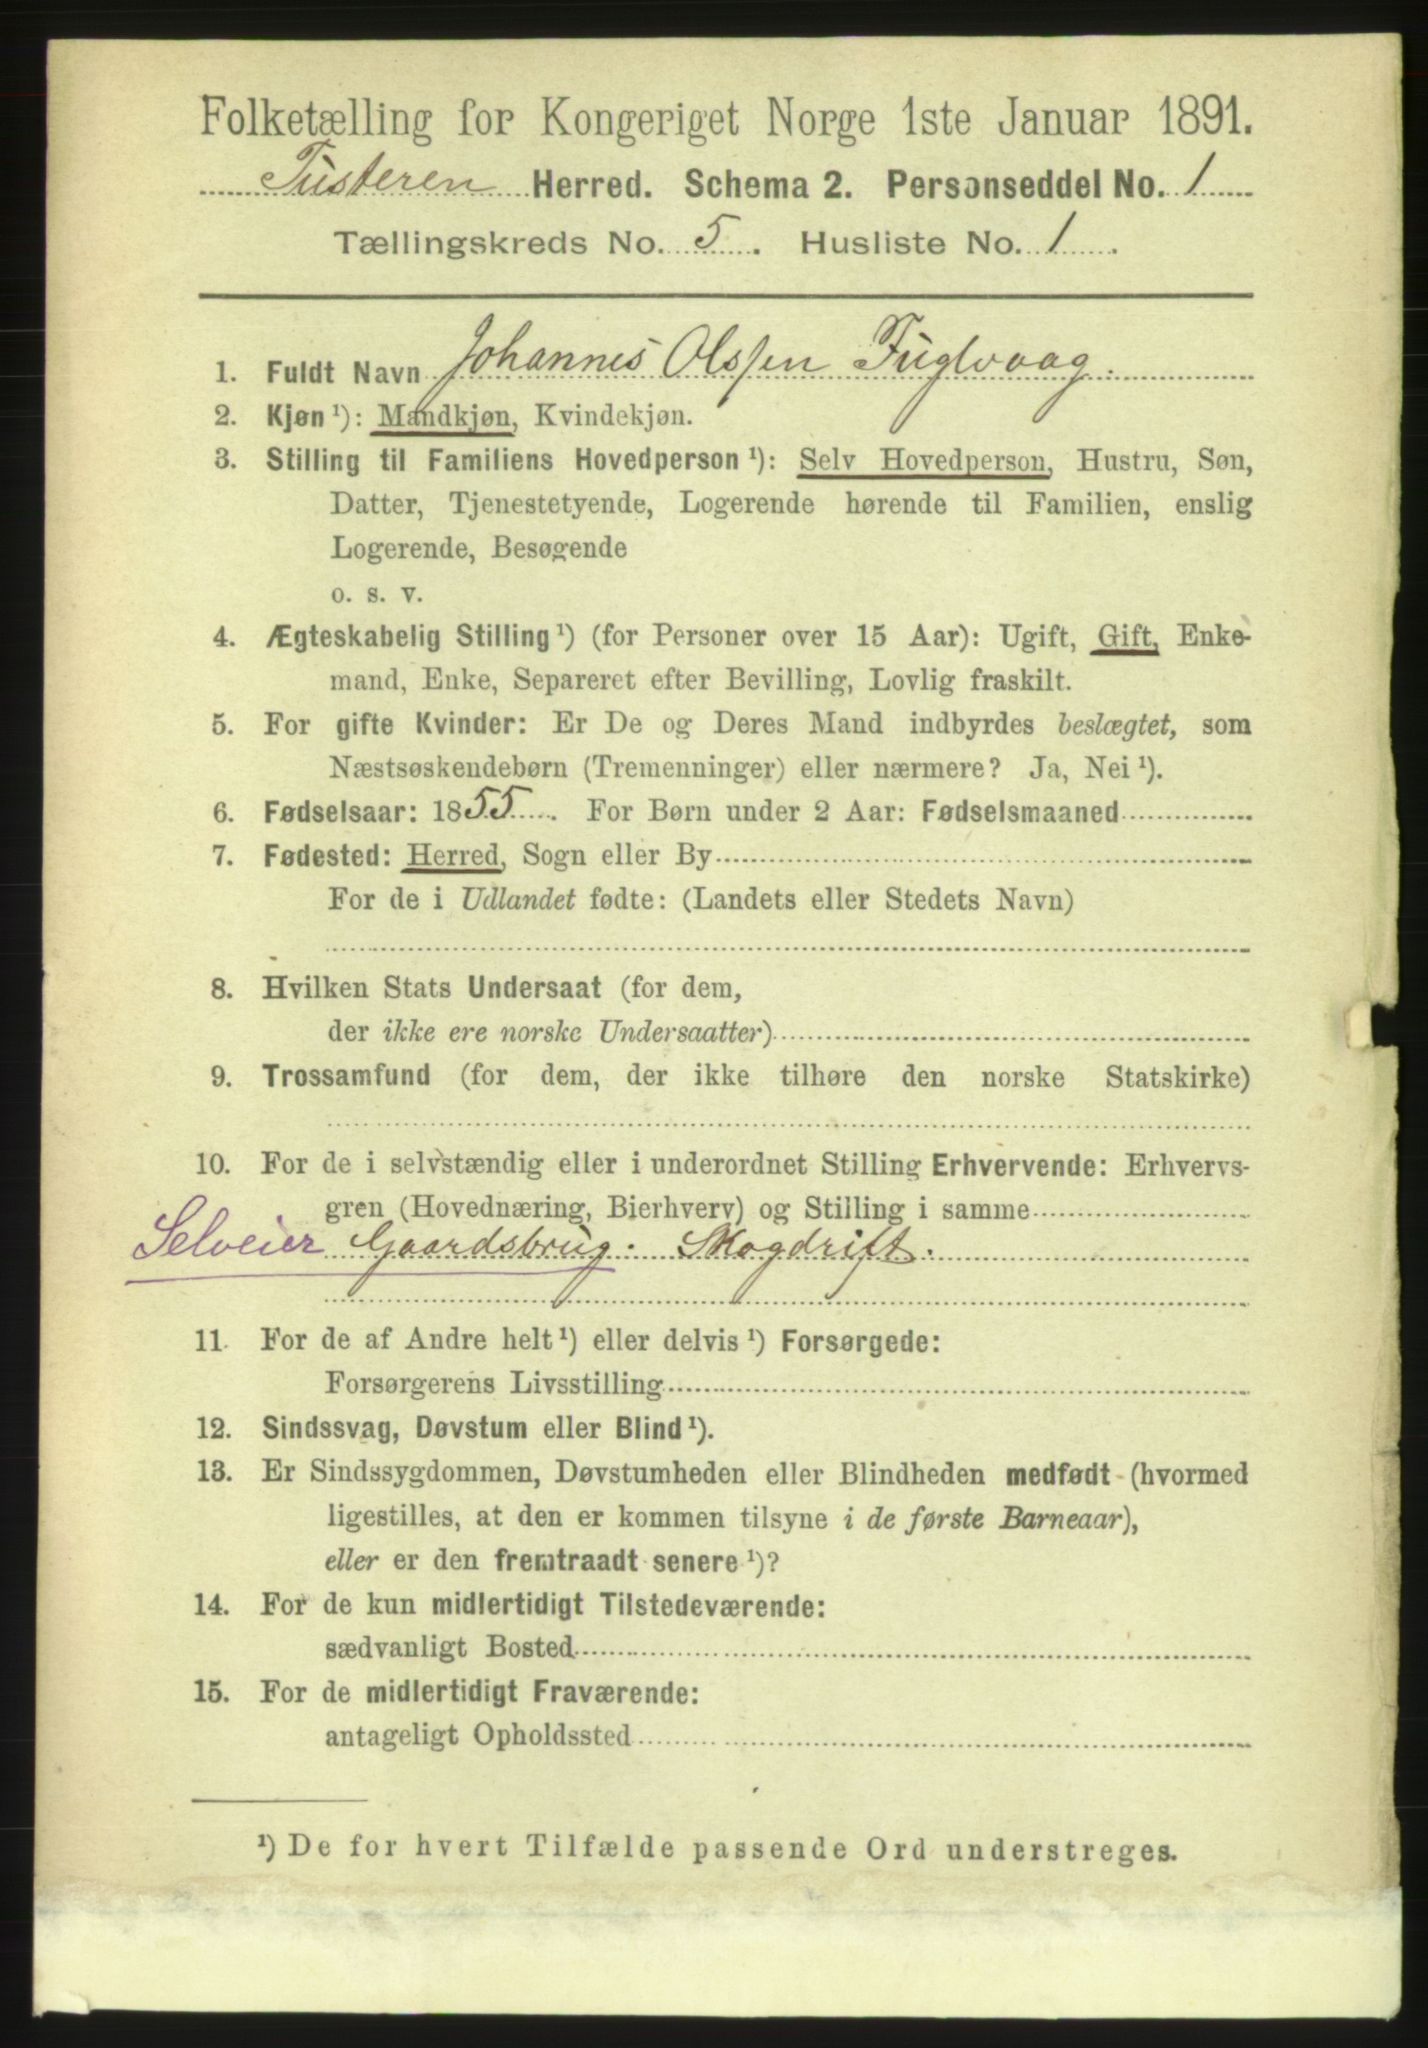 Folketælling for Kongeriget Norge 1ste Januar 1891.
Tusteren Herred. Schema 2. Personseddel No. 1
Tællingskreds No. 5. Husliste No. 1.
1. Fuldt Navn Johannes Olssen Fuglvaag.
2. Kjøn ¹): Mandkjøn, Kvindekjøn.
3. Stilling til Familiens Hovedperson ¹): Selv Hovedperson, Hustru, Søn,
Datter, Tjenestetyende, Logerende hørende til Familien, enslig
Logerende, Besøgende
o. s. v.
4. Ægteskabelig Stilling ¹) (for Personer over 15 Aar): Ugift, Gift, Enke-
mand, Enke, Separeret efter Bevilling, Lovlig fraskilt.
5. For gifte Kvinder: Er De og Deres Mand indbyrdes beslægtet, som
Næstsøskendebørn (Tremenninger) eller nærmere? Ja, Nei ¹).
6. Fødselsaar: 1855. For Børn under 2 Aar: Fødselsmaaned
7. Fødested: Herred, Sogn eller By
For de i Udlandet fødte: (Landets eller Stedets Navn)
8. Hvilken Stats Undersaat (for dem,
der ikke ere norske Undersaatter)
9. Trossamfund (for dem, der ikke tilhøre den norske Statskirke)
10. For de i selvstændig eller i underordnet Stilling Erhvervende: Erhvervs-
gren (Hovednæring, Bierhverv) og Stilling i samme
Selveier Gaardsbrug. Skogdrift.
11. For de af Andre helt ¹) eller delvis ¹) Forsørgede:
Forsørgerens Livsstilling
12. Sindssvag, Døvstum eller Blind ¹).
13. Er Sindssygdommen, Døvstumheden eller Blindheden medfødt (hvormed
ligestilles, at den er kommen tilsyne i de første Barneaar),
eller er den fremtraadt senere ¹)?
14. For de kun midlertidigt Tilstedeværende:
sædvanligt Bosted
15. For de midlertidigt Fraværende:
antageligt Opholdssted
¹) De for hvert Tilfælde passende Ord understreges.